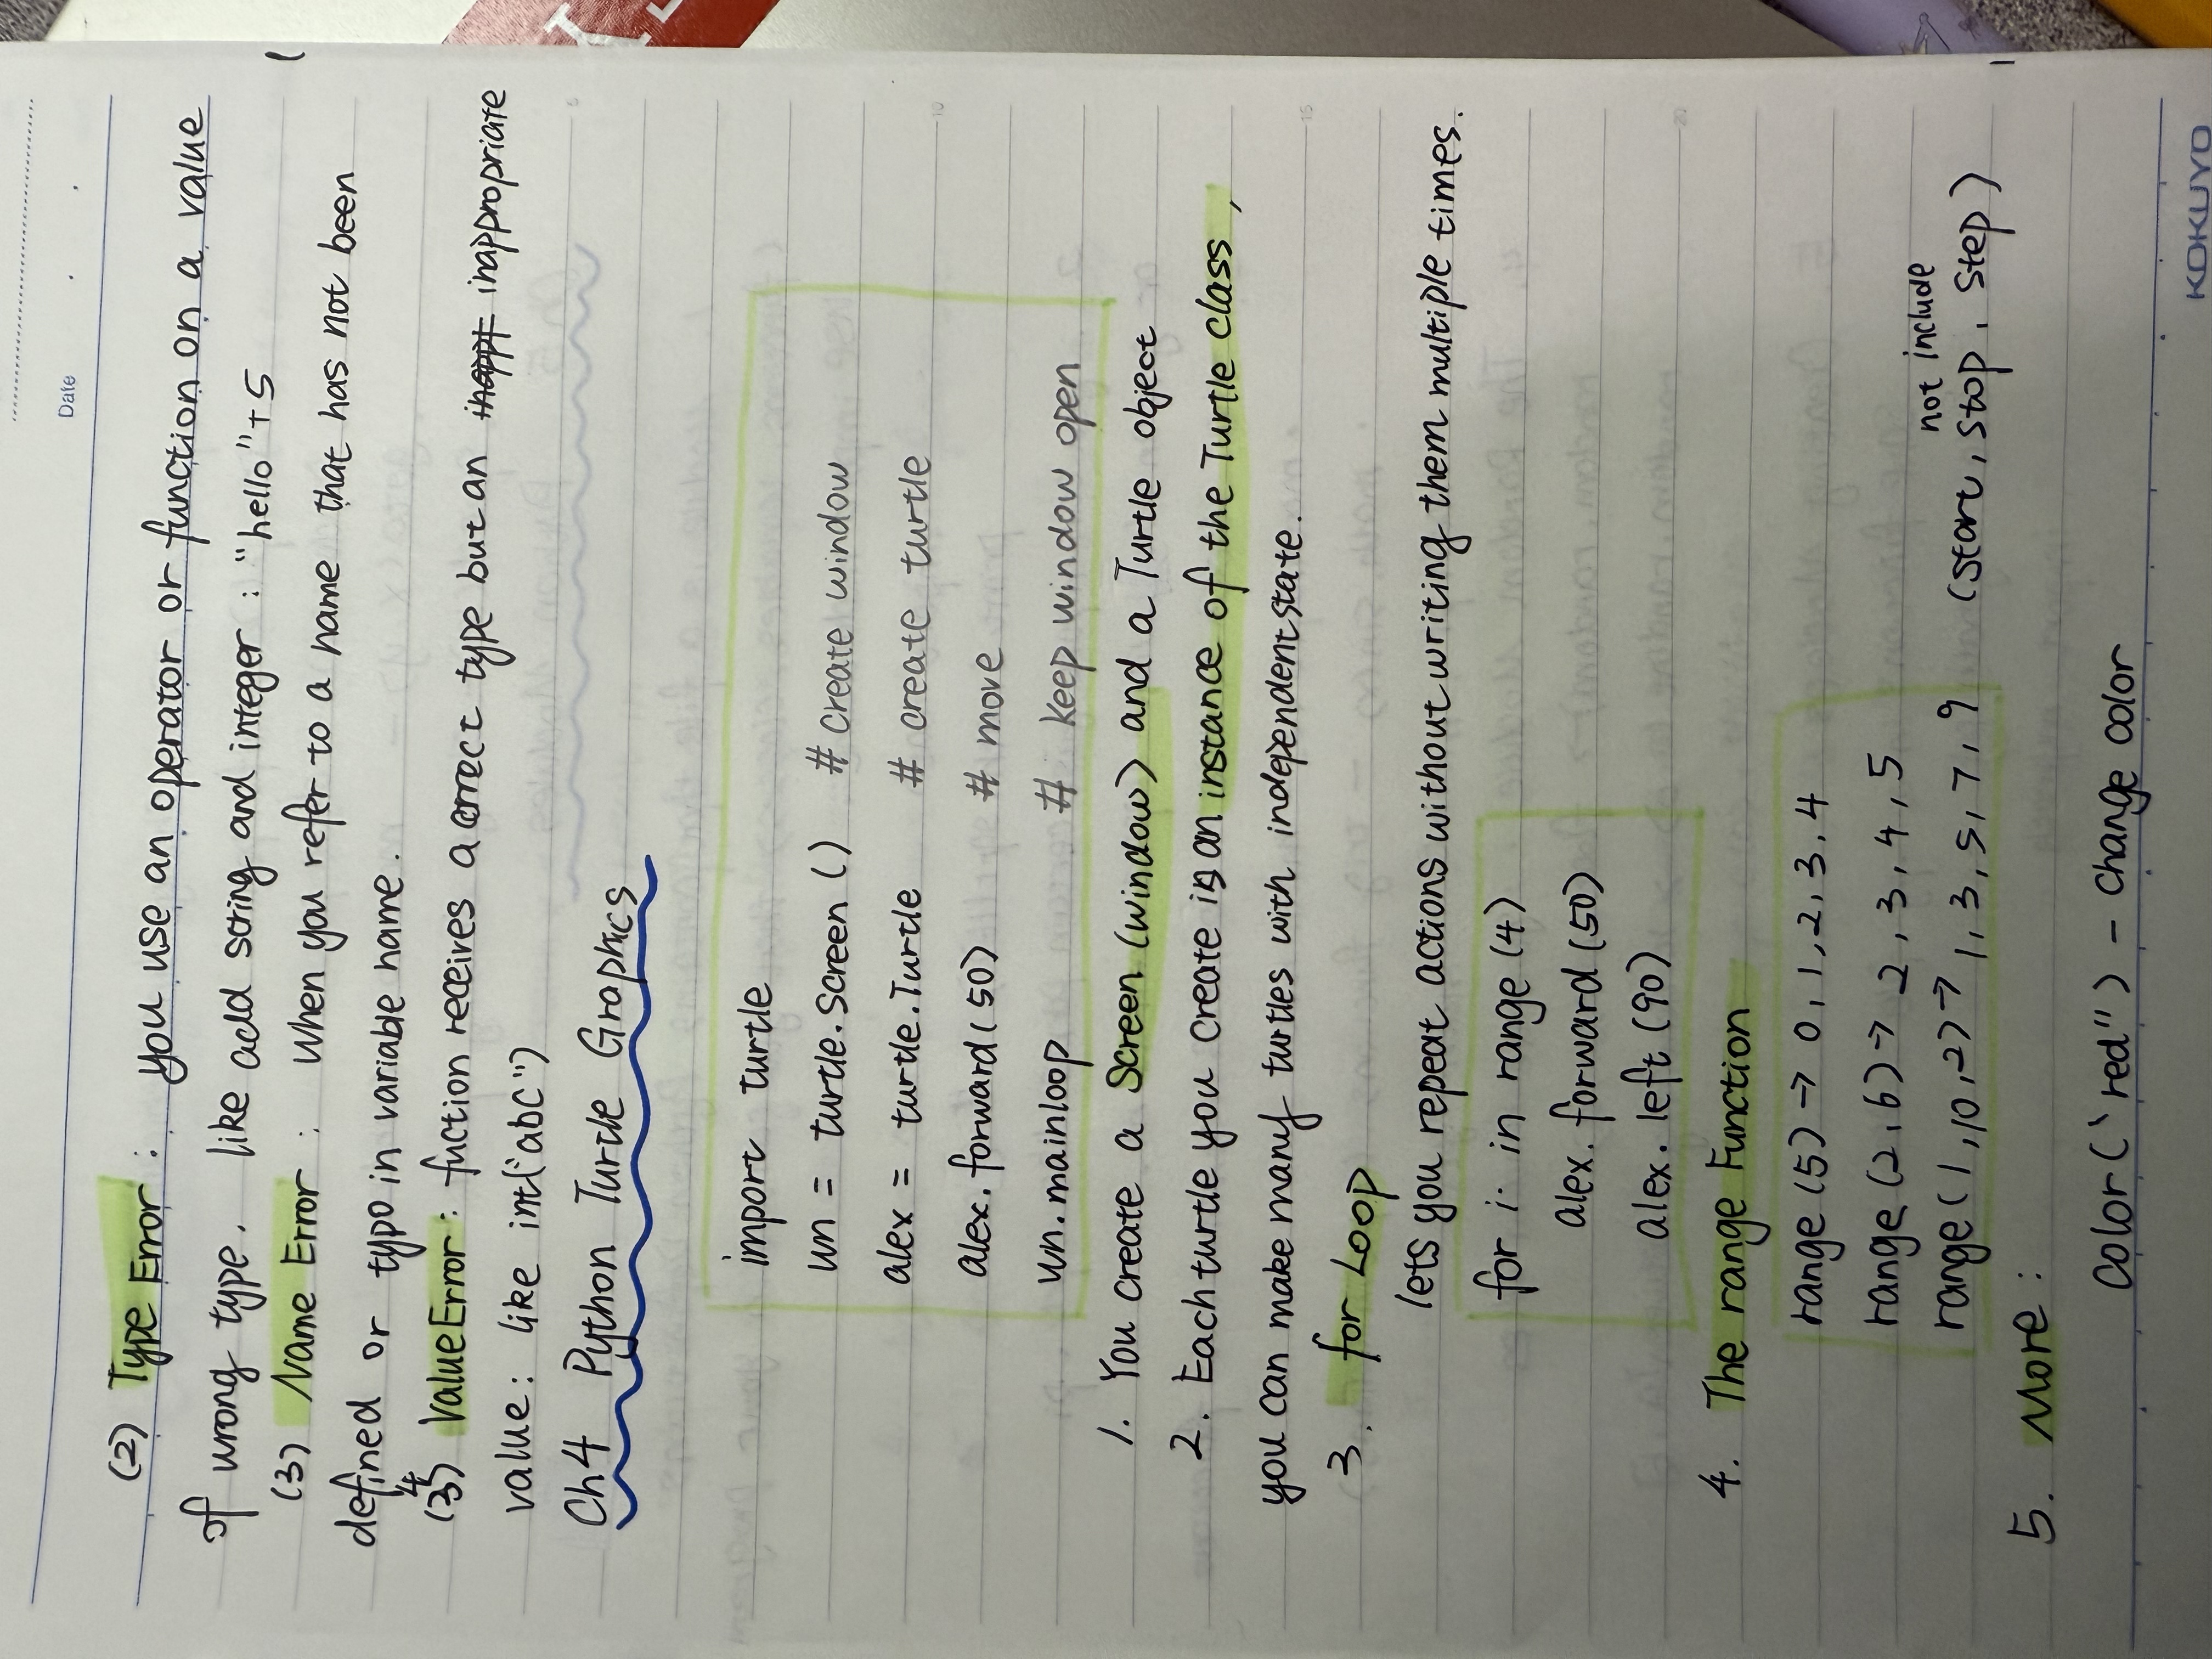 Date
(2) Type Error : you use an operator or function on a value
of wrong type. like add string and integer : "hello"+5
(3) Name Error : When you refer to a name that has not been
defined or typo in variable name.
4
(3) ValueError : fuction receives a correct type but an inappr inappropriate
value: like int("abc")
Ch4 Python Turtle Graphics
import turtle
wn = turtle.Screen () # create window
alex = turtle.Turtle # create turtle
alex.forward(50) # move
wn.mainloop # keep window open
1. You create a Screen (window) and a Turtle object
2. Each turtle you create is an instance of the Turtle class,
you can make many turtles with independent state.
3. for Loop
lets you repeat actions without writing them multiple times.
for i in range (4)
alex.forward (50)
alex.left (90)
4. The range Function
range (5) → 0, 1, 2, 3, 4
range (2, 6) → 2, 3, 4, 5
not include
range (1, 10, 2) → 1, 3, 5, 7, 9 (start, stop, step)
5. More :
color ("red") - change color
KOKUYO